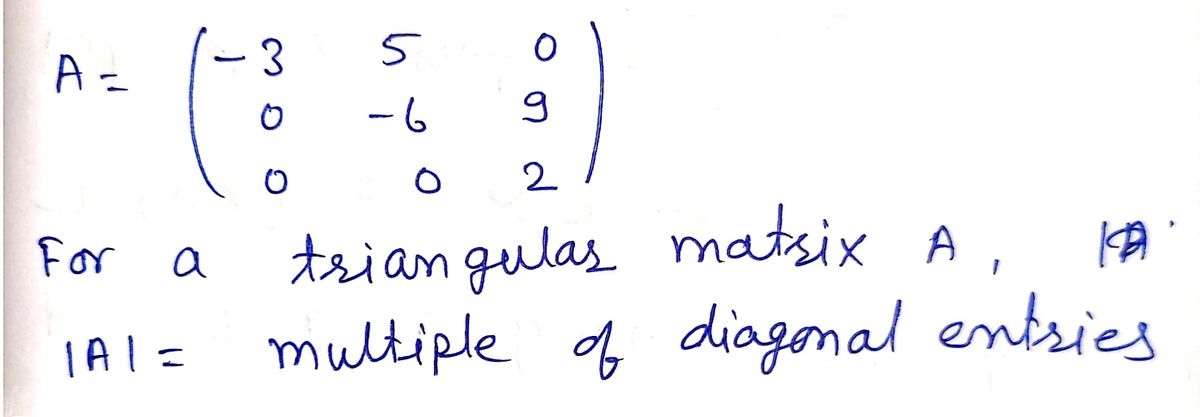 A = ( -3 5 0
0 -6 9
0 0 2 )
For a triangular matrix A ,
|A| = multiple of diagonal entries